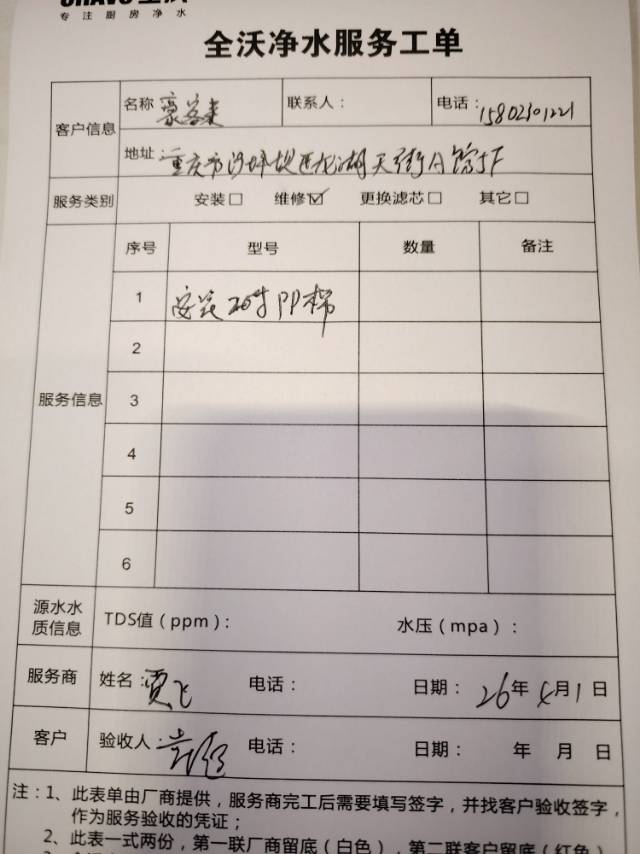 专注厨房净水
全沃净水服务工单
客户信息 名称 豪客来 联系人： 电话：15802301221
地址：重庆市沙坪坝区龙湖天街A馆5F
服务类别 安装□ 维修☑ 更换滤芯□ 其它□
服务信息 序号 型号 数量 备注
1 安装20寸PP棉
2
3
4
5
6
源水水质信息 TDS值（ppm）： 水压（mpa）：
服务商 姓名：贾飞 电话： 日期：26年4月1日
客户 验收人： 电话： 日期： 年 月 日
注：1、此表单由厂商提供，服务商完工后需要填写签字，并找客户验收签字，
作为服务验收的凭证；
2、此表一式两份，第一联厂商留底（白色），第二联客户留底（红色）